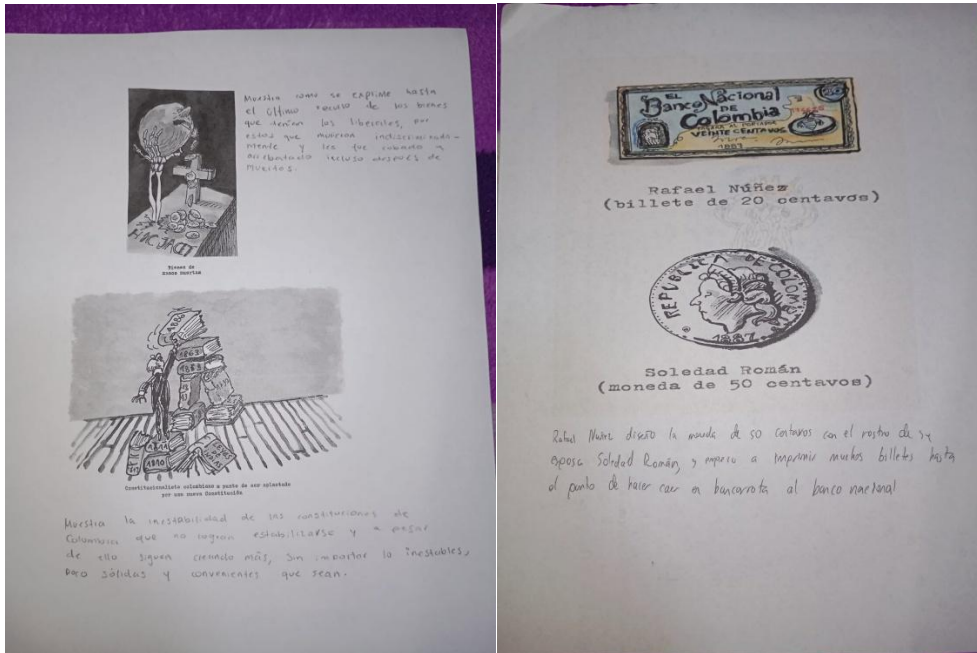 Muestra como se exprime hasta
el último recurso de los bienes
que tenían los liberales, por
estos que murieron indiscriminada-
mente y les fue robado y
arrebatando incluso después de
muertos.
HIC JACET
Bienes de
manos muertas
1886
1863
1853
1811
1810
LEYES
DE
INDIAS
Constitucionalista colombiano a punto de ser aplastado
por una nueva Constitución
Muestra la inestabilidad de las constituciones de
Colombia que no logran estabilizarse y a pesar
de ello siguen creando más, sin importar lo inestables,
poco sólidas y convenientes que sean.
EL
Banco Nacional
DE
Colombia
PAGARÁ AL PORTADOR
VEINTE CENTAVOS
Rafael Núñez
(billete de 20 centavos)
REPUBLICA DE COLOMBIA
1887
Soledad Román
(moneda de 50 centavos)
Rafael Nuñez diseño la moneda de 50 centavos con el rostro de su
esposa Soledad Román, y empezo a imprimir muchos billetes hasta
el punto de hacer caer en bancarrota al banco nacional